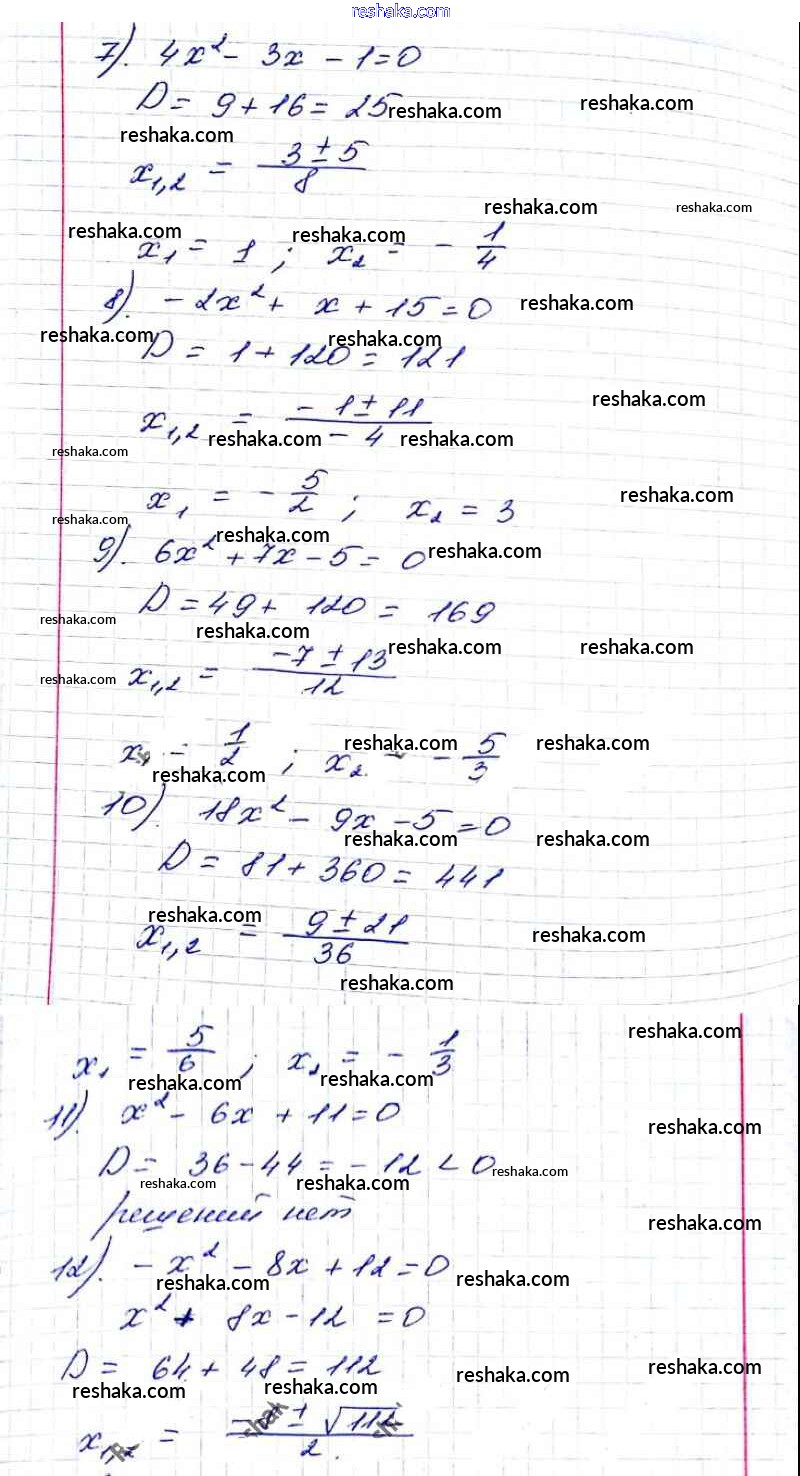 reshaka.com
7). 4x² - 3x - 1 = 0
D = 9 + 16 = 25 reshaka.com reshaka.com
reshaka.com
x₁,₂ = (3 ± 5)/8
reshaka.com reshaka.com
reshaka.com reshaka.com
x₁ = 1 ; x₂ = - 1/4
8). - 2x² + x + 15 = 0 reshaka.com
reshaka.com reshaka.com
D = 1 + 120 = 121
reshaka.com
x₁,₂ = (- 1 ± 11)/(- 4)
reshaka.com reshaka.com
reshaka.com
reshaka.com
x₁ = - 5/2 ; x₂ = 3
reshaka.com
reshaka.com
9). 6x² + 7x - 5 = 0 reshaka.com
D = 49 + 120 = 169
reshaka.com
reshaka.com
reshaka.com reshaka.com
x₁,₂ = (-7 ± 13)/12
reshaka.com
reshaka.com reshaka.com
x₁ = 1/2 ; x₂ = - 5/3
reshaka.com
10). 18x² - 9x - 5 = 0
reshaka.com reshaka.com
D = 81 + 360 = 441
reshaka.com
x₁,₂ = (9 ± 21)/36 reshaka.com
reshaka.com
reshaka.com
x₁ = 5/6 ; x₂ = - 1/3
reshaka.com reshaka.com
11). x² - 6x + 11 = 0
reshaka.com
D = 36 - 44 = - 12 < 0 reshaka.com
reshaka.com reshaka.com
решений нет reshaka.com
12). - x² - 8x + 12 = 0
reshaka.com reshaka.com
x² + 8x - 12 = 0
D = 64 + 48 = 112 reshaka.com
reshaka.com reshaka.com reshaka.com
x₁,₂ = (-8 ± √112)/2